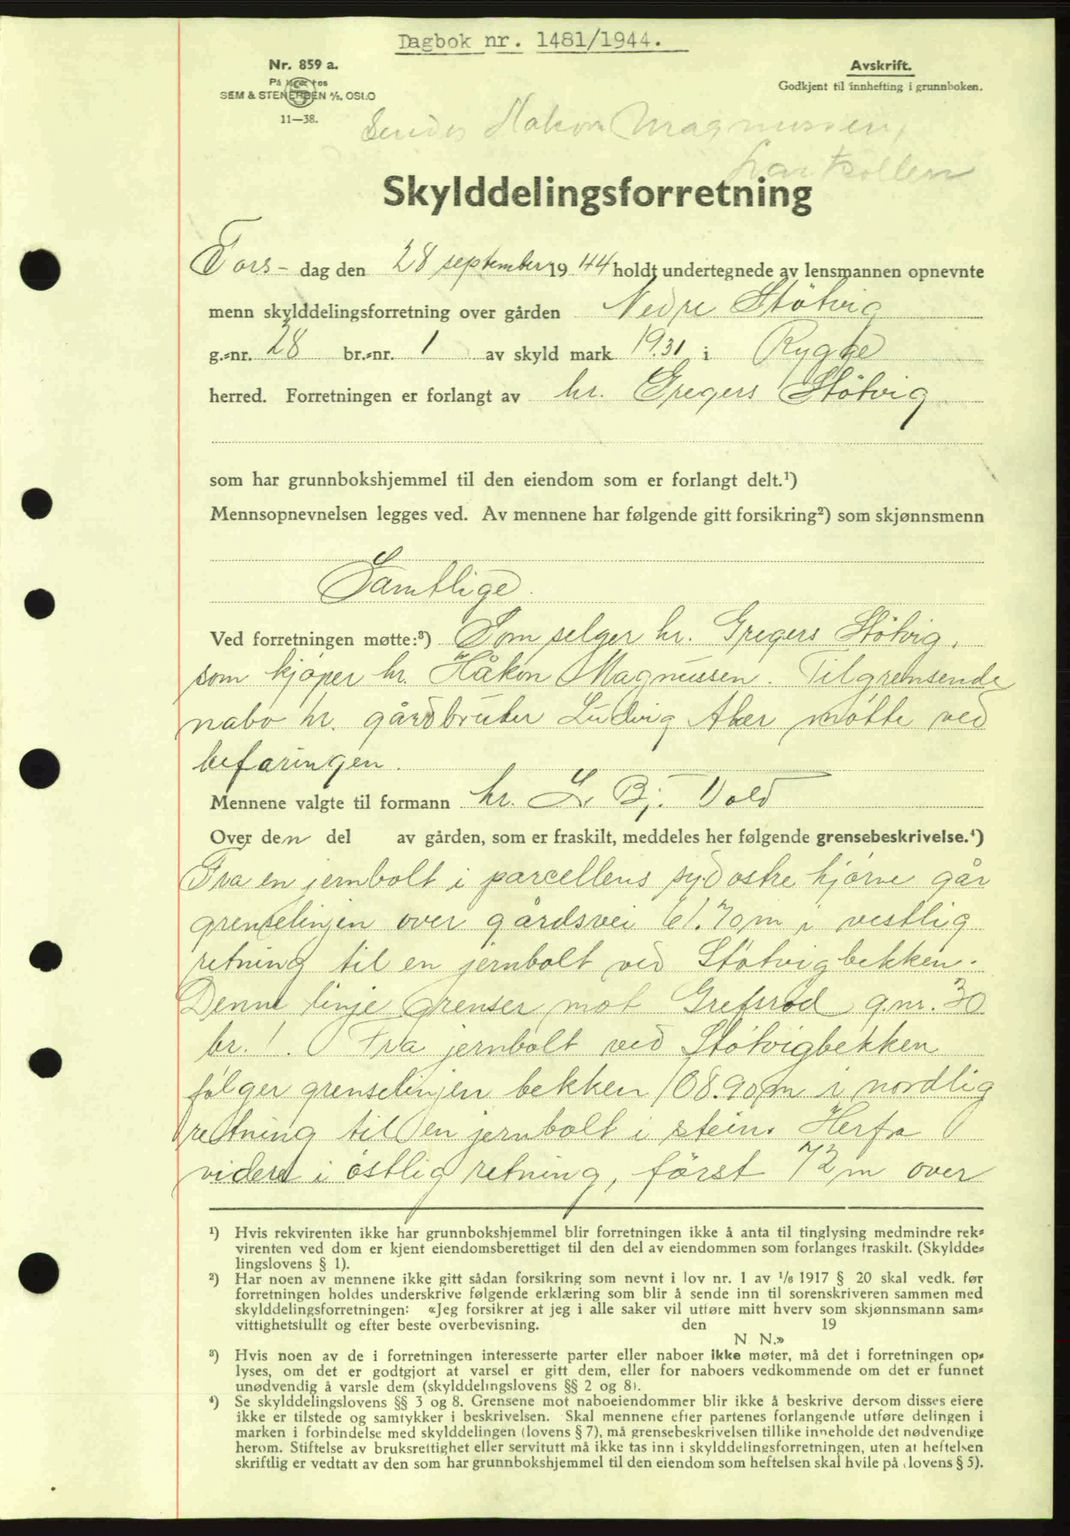 Dagbok nr. 1481/1944.
Nr. 859 a.
På lager hos
SEM & STENERSEN A/S, OSLO
11—38.
Avskrift.
Godkjent til innhefting i grunnboken.
Sendes Hakon Magnussen,
Larkollen
Skylddelingsforretning
Tors- dag den 28 september 1944 holdt undertegnede av lensmannen opnevnte
menn skylddelingsforretning over gården Nedre Støtvig
g.=nr. 28 br.=nr. 1 av skyld mark 19.31 i Rygge
herred. Forretningen er forlangt av hr. Gregers Støtvig
som har grunnbokshjemmel til den eiendom som er forlangt delt.¹)
Mennsopnevnelsen legges ved. Av mennene har følgende gitt forsikring²) som skjønnsmenn
Samtlige.
Ved forretningen møtte:³) Som selger hr. Gregers Støtvig,
som kjøper hr. Håkon Magnussen. Tilgrensende
nabo hr. gårdbruker Ludvig Aker møtte ved
befaringen.
Mennene valgte til formann hr. L. Bj. Vold
Over den del av gården, som er fraskilt, meddeles her følgende grensebeskrivelse.⁴)
Fra en jernbolt i parcellens sydøstre hjørne går
grenselinjen over gårdsvei 61.70 m i vestlig
retning til en jernbolt ved Støtvigbekken.
Denne linje grenser mot Grefsrød g.nr. 30
br. 1. Fra jernbolt ved Støtvigbekken
følger grenselinjen bekken 108.90 m i nordlig
retning til en jernbolt i stein. Herfra
videre i östlig retning, först 72 m over
¹) Hvis rekvirenten ikke har grunnbokshjemmel blir forretningen ikke å anta til tinglysing medmindre rek=
virenten ved dom er kjent eiendomsberettiget til den del av eiendommen som forlanges fraskilt. (Skyldde=
lingslovens § 1).
²) Har noen av mennene ikke gitt sådan forsikring som nevnt i lov nr. 1 av 1/6 1917 § 20 skal vedk. før
forretningen holdes underskrive følgende erklæring som blir å sende inn til sorenskriveren sammen med
skylddelingsforretningen: «Jeg forsikrer at jeg i alle saker vil utføre mitt hverv som skjønnsmann sam=
vittighetsfullt og efter beste overbevisning. den 19
N. N.»
³) Hvis noen av de i forretningen interesserte parter eller naboer ikke møter, må det i forretningen op=
lyses, om det er godtgjort at varsel er gitt dem, eller for naboers vedkommende om det er funnet
unødvendig å varsle dem (skylddelingslovens §§ 2 og 8).
⁴) Se skylddelingslovens §§ 3 og 8. Grensene mot naboeiendommer blir ikke å beskrive dersom disses eiere
ikke er tilstede og samtykker i beskrivelsen. Skal mennene efter partenes forlangende utføre delingen i
marken i forbindelse med skylddelingen (lovens § 7), må grensebeskrivelsen tillike inneholde det nødvendige
herom. Stiftelse av bruksrettighet eller servitutt må ikke tas inn i skylddelingsforretningen, uten at heftelsen
skriftlig er vedtatt av den som har grunnbokshjemmel til den eiendom som heftelsen skal hvile på (lovens § 5).